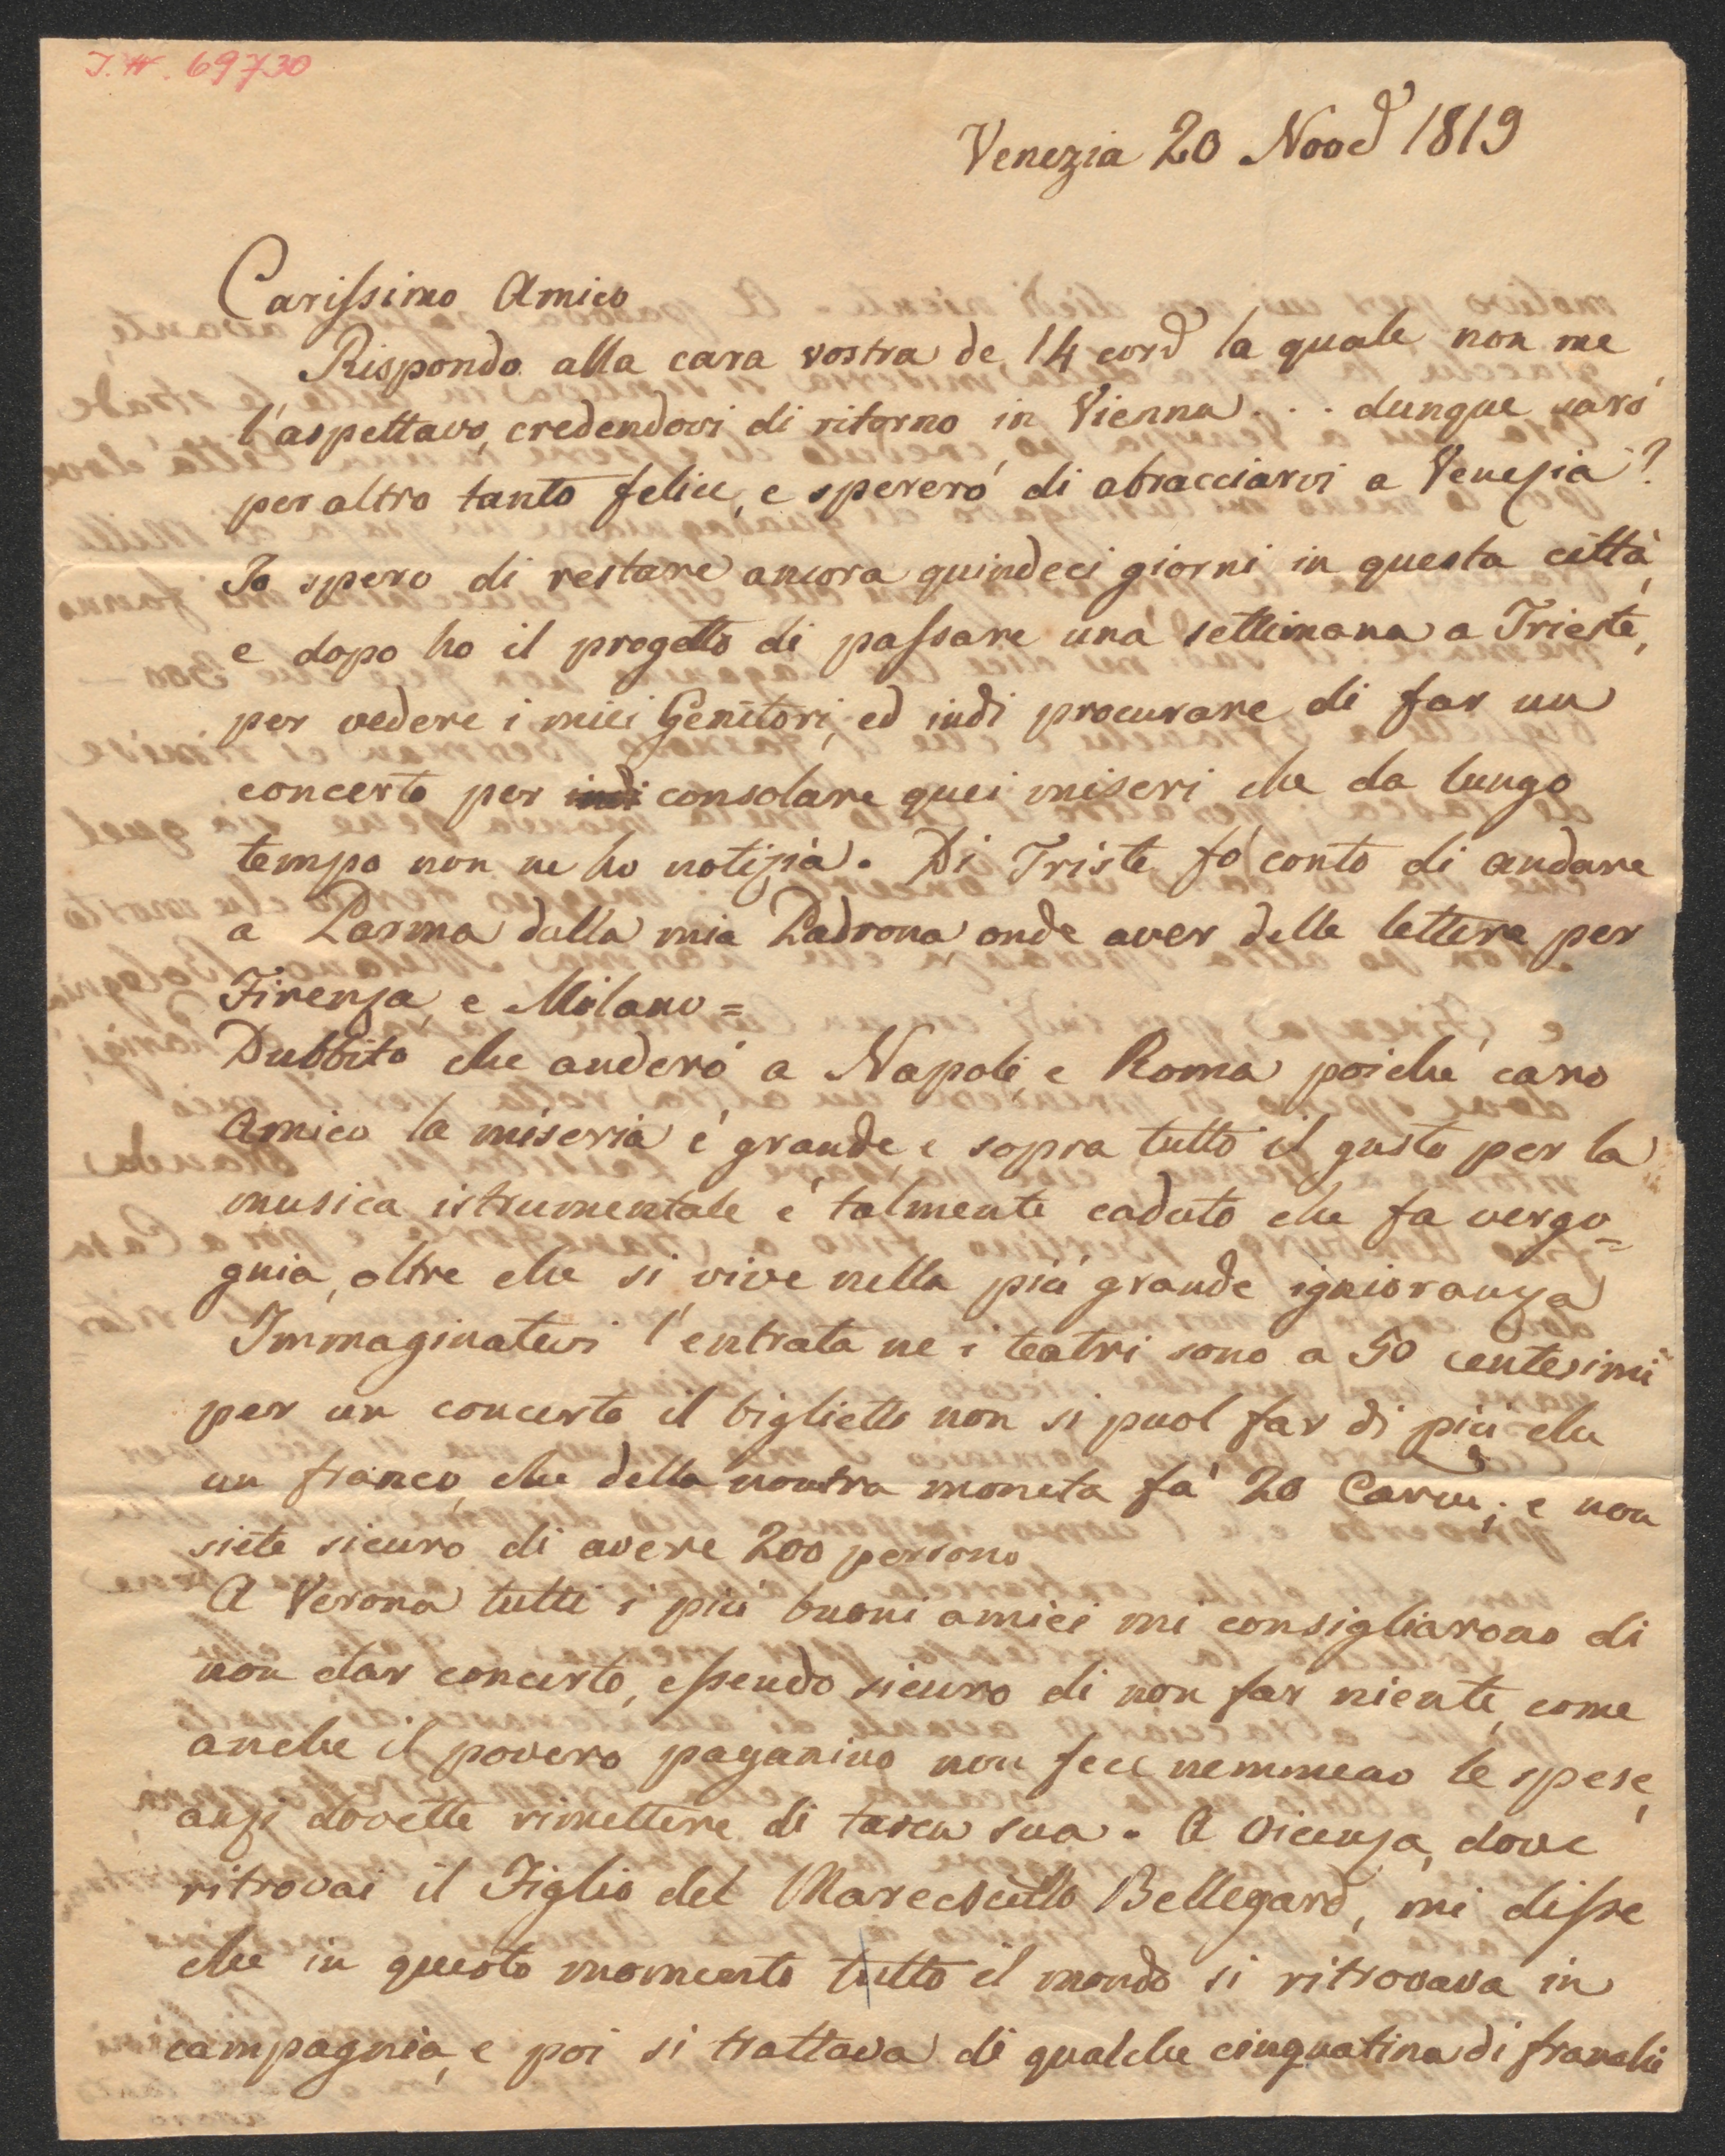 J. N. 69730
Venezia 20 Novd 1819
Carissimo Amico
Rispondo alla cara vostra de 14 cord la quale non me
l'aspettavo, credendovi di ritorno in Vienna . . . dunque saró
per altro tanto felice, e spereró di abracciarvi a Venezia?
Io spero di restare ancora quindeci giorni in questa città,
e dopo ho il progetto di passare una settimana a Trieste,
per vedere i miei Genitori, ed indi procurare di far un
concerto per indi consolare quei miseri che da lungo
tempo non ne ho notizia. Di Triste fó conto di andare
a Parma dalla mia Padrona onde aver delle lettere per
Firenza, e Milano =
Dubbito che anderó a Napoli, e Roma poiché caro
Amico la miseria é grande, e sopra tutto il gusto per la
musica istrumentale é talmente caduto che fa vergo=
gnia, oltre che si vive nella piú grande ignioranza
Immaginatevi l'entrata ne i teatri sono a 50 centesimi
per un concerto il biglietto non si puol far di piú che
un franco, che della nostra moneta fa' 20 Carni; e non
siete sicuro di avere 200 persone
A Verona tutti i piú buoni amici mi consigliarono di
non dar concerto, essendo sicuro di non far niente, come
anche il povero paganino non fece nemmeno le spese,
anzi dovette rimettere di tasca sua. A Vicenza, dove
ritrovai il Figlio del Maresciallo Bellegard, mi disse
che in questo momento tutto il mondo si ritrovava in
campagnia, e poi si trattava di qualche cinquatina di franchi